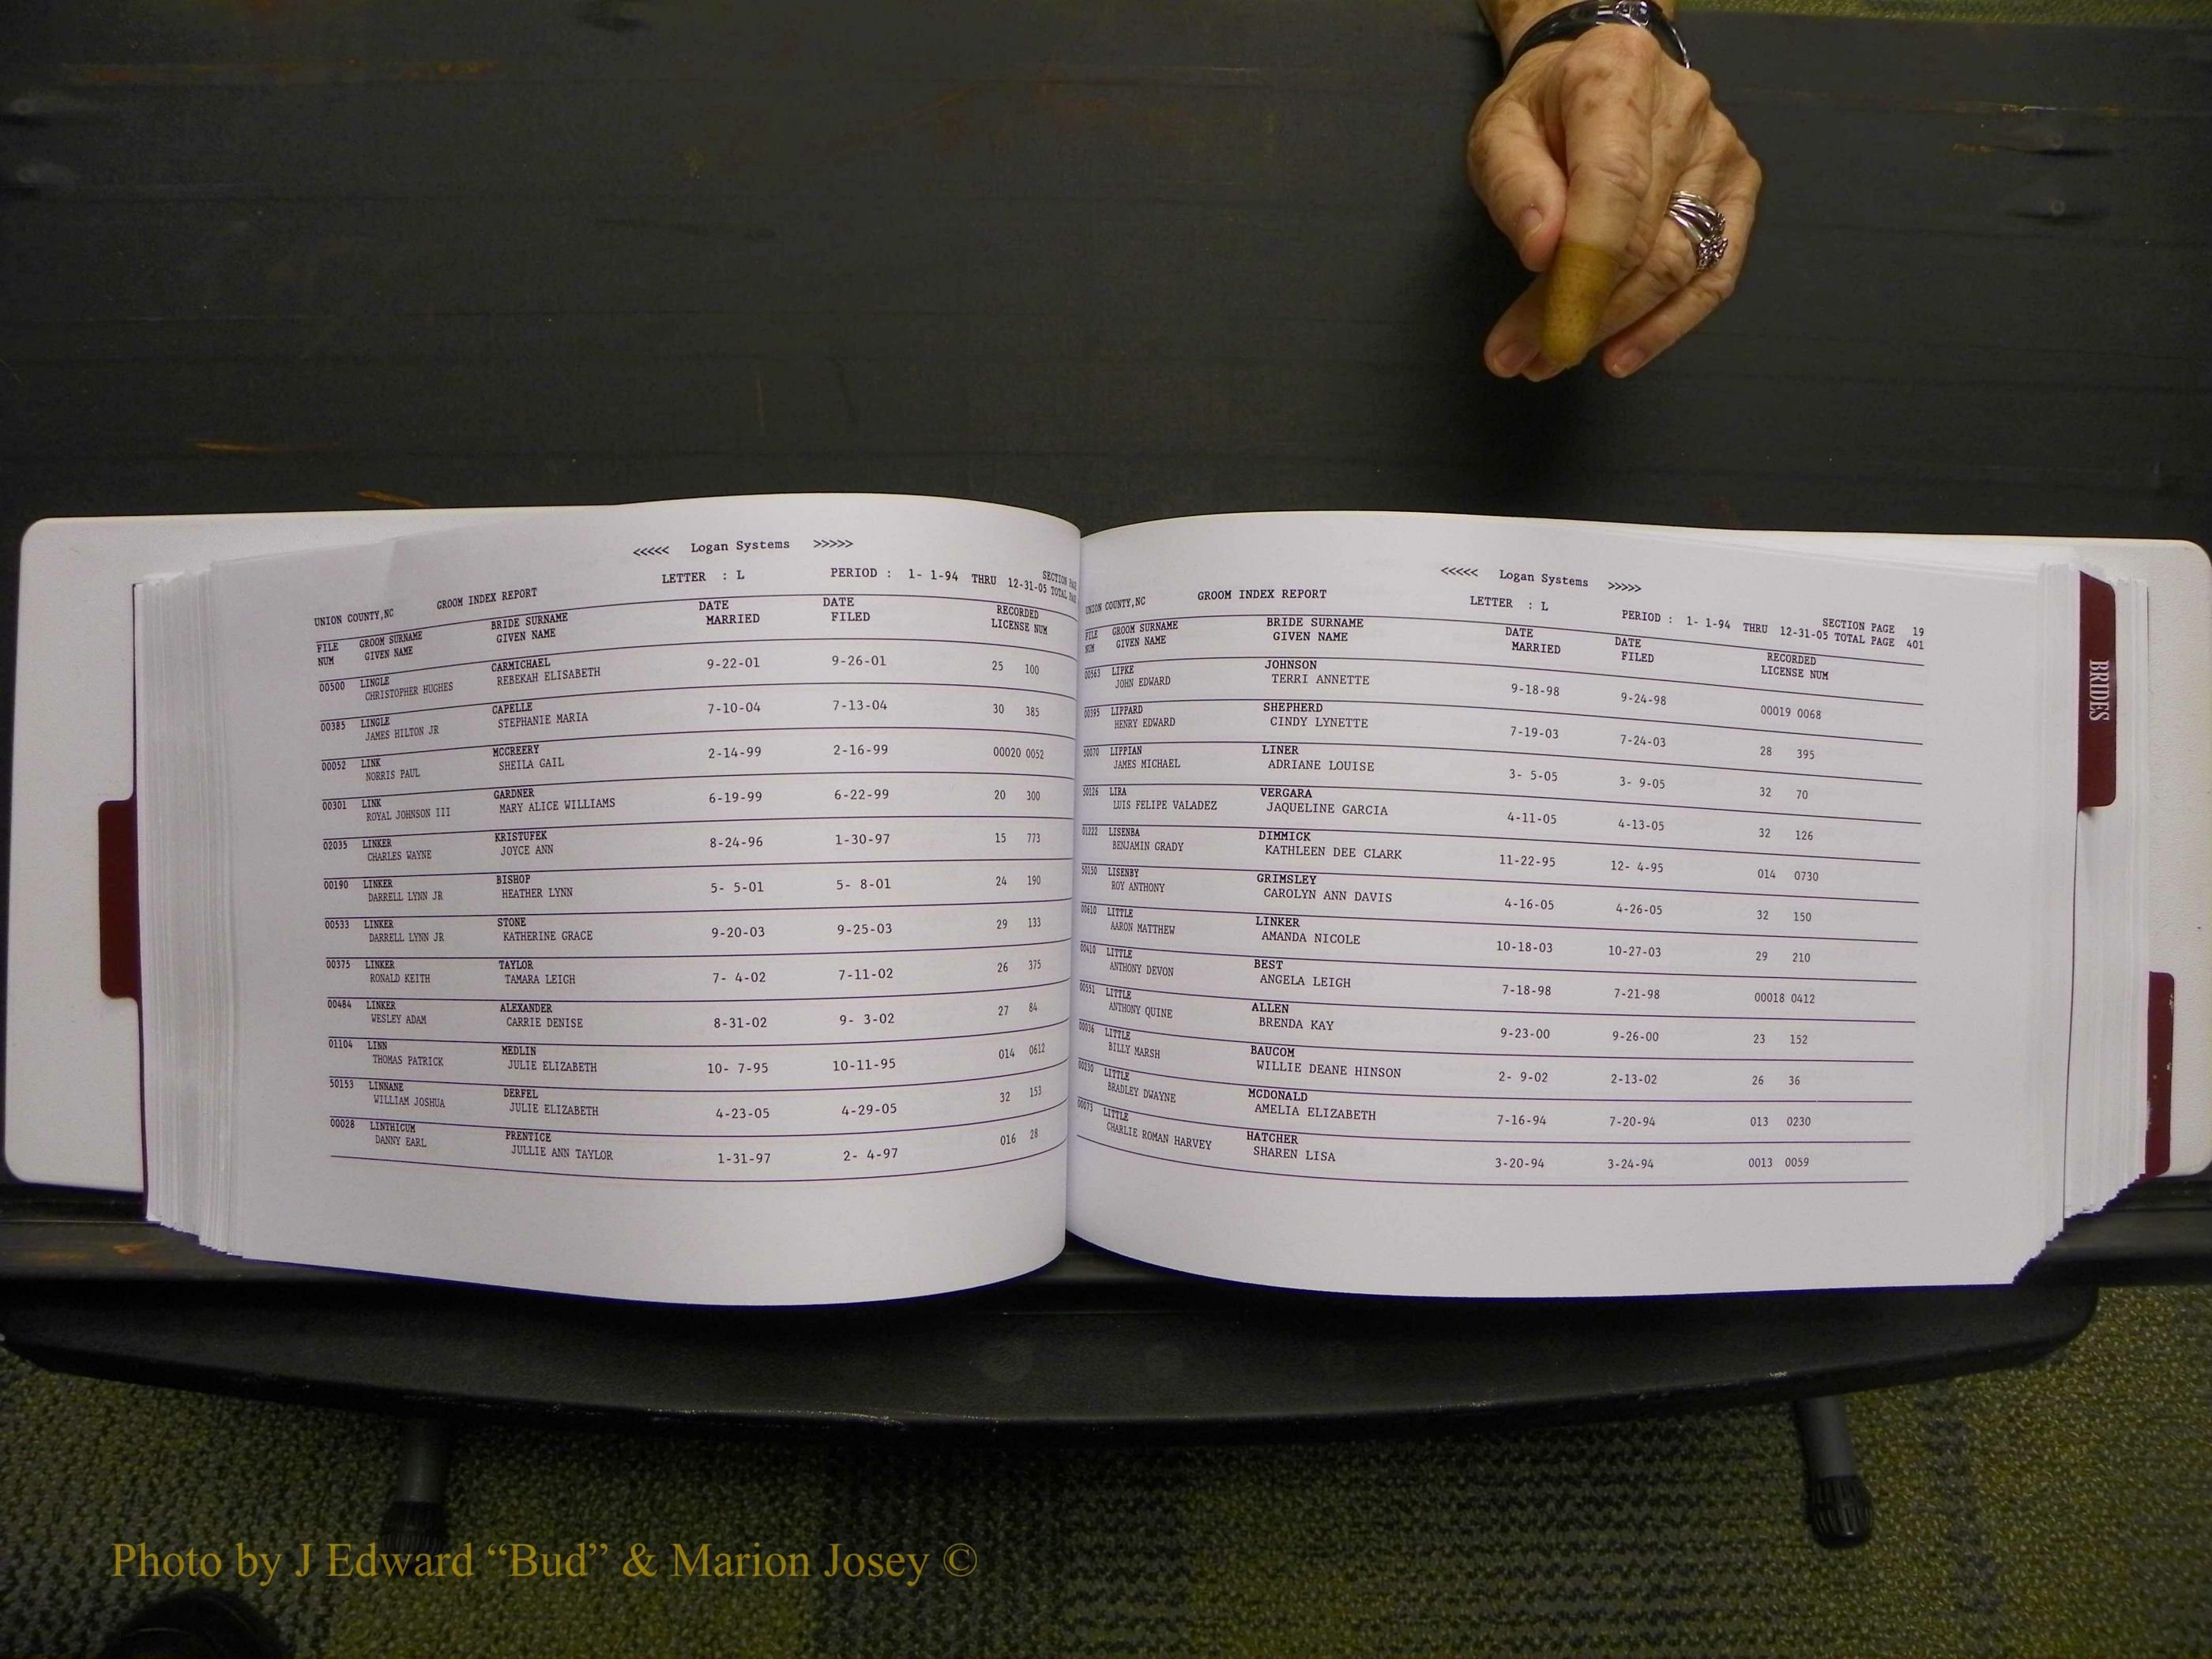 <<<<< Logan Systems >>>>>
UNION COUNTY,NC GROOM INDEX REPORT LETTER : L PERIOD : 1- 1-94 THRU 12-31-05 SECTION
TOTAL
FILE GROOM SURNAME BRIDE SURNAME DATE DATE RECORDED
NUM GIVEN NAME GIVEN NAME MARRIED FILED LICENSE NUM
00500 LINGLE CARMICHAEL 9-22-01 9-26-01 25 100
CHRISTOPHER HUGHES REBEKAH ELISABETH
00385 LINGLE CAPELLE 7-10-04 7-13-04 30 385
JAMES HILTON JR STEPHANIE MARIA
00052 LINK MCCREERY 2-14-99 2-16-99 00020 0052
NORRIS PAUL SHEILA GAIL
00301 LINK GARDNER 6-19-99 6-22-99 20 300
ROYAL JOHNSON III MARY ALICE WILLIAMS
02035 LINKER KRISTUFEK 8-24-96 1-30-97 15 773
CHARLES WAYNE JOYCE ANN
00190 LINKER BISHOP 5- 5-01 5- 8-01 24 190
DARRELL LYNN JR HEATHER LYNN
00533 LINKER STONE 9-20-03 9-25-03 29 133
DARRELL LYNN JR KATHERINE GRACE
00375 LINKER TAYLOR 7- 4-02 7-11-02 26 375
RONALD KEITH TAMARA LEIGH
00484 LINKER ALEXANDER 8-31-02 9- 3-02 27 84
WESLEY ADAM CARRIE DENISE
01104 LINN MEDLIN 10- 7-95 10-11-95 014 0612
THOMAS PATRICK JULIE ELIZABETH
50153 LINNANE DERFEL 4-23-05 4-29-05 32 153
WILLIAM JOSHUA JULIE ELIZABETH
00028 LINTHICUM PRENTICE 1-31-97 2- 4-97 016 28
DANNY EARL JULLIE ANN TAYLOR
<<<<< Logan Systems >>>>>
UNION COUNTY,NC GROOM INDEX REPORT LETTER : L PERIOD : 1- 1-94 THRU 12-31-05 SECTION PAGE 19
TOTAL PAGE 401
FILE GROOM SURNAME BRIDE SURNAME DATE DATE RECORDED
NUM GIVEN NAME GIVEN NAME MARRIED FILED LICENSE NUM
00563 LIPKE JOHNSON 9-18-98 9-24-98 00019 0068
JOHN EDWARD TERRI ANNETTE
00395 LIPPARD SHEPHERD 7-19-03 7-24-03 28 395
HENRY EDWARD CINDY LYNETTE
50070 LIPPIAN LINER 3- 5-05 3- 9-05 32 70
JAMES MICHAEL ADRIANE LOUISE
50126 LIRA VERGARA 4-11-05 4-13-05 32 126
LUIS FELIPE VALADEZ JAQUELINE GARCIA
01222 LISENBA DIMMICK 11-22-95 12- 4-95 014 0730
BENJAMIN GRADY KATHLEEN DEE CLARK
50150 LISENBY GRIMSLEY 4-16-05 4-26-05 32 150
ROY ANTHONY CAROLYN ANN DAVIS
00610 LITTLE LINKER 10-18-03 10-27-03 29 210
AARON MATTHEW AMANDA NICOLE
00410 LITTLE BEST 7-18-98 7-21-98 00018 0412
ANTHONY DEVON ANGELA LEIGH
00551 LITTLE ALLEN 9-23-00 9-26-00 23 152
ANTHONY QUINE BRENDA KAY
00036 LITTLE BAUCOM 2- 9-02 2-13-02 26 36
BILLY MARSH WILLIE DEANE HINSON
00230 LITTLE MCDONALD 7-16-94 7-20-94 013 0230
BRADLEY DWAYNE AMELIA ELIZABETH
00073 LITTLE HATCHER 3-20-94 3-24-94 0013 0059
CHARLIE ROMAN HARVEY SHAREN LISA
BRIDES
Photo by J Edward “Bud” & Marion Josey ©